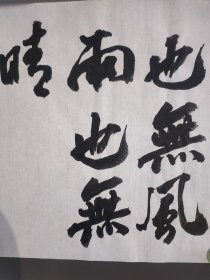 也無風
雨也無
晴